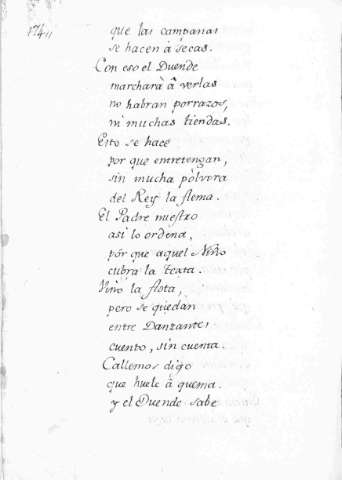 174
que las campanas
se hacen à secas.
Con eso el Duende
marcharà à verlas
no habran porrazos,
ni muchas tiendas.
Esto se hace
por que entretengan,
sin mucha pòlvora
del Rey la flema.
El Padre nuestro
asi lo ordena,
pòr que aquel Niño
cubra la texta.
Vino la flota,
pero se quedan
entre Danzantes
cuento, sin cuenta.
Callemos digo
que huele à quema.
y el Duende sabe